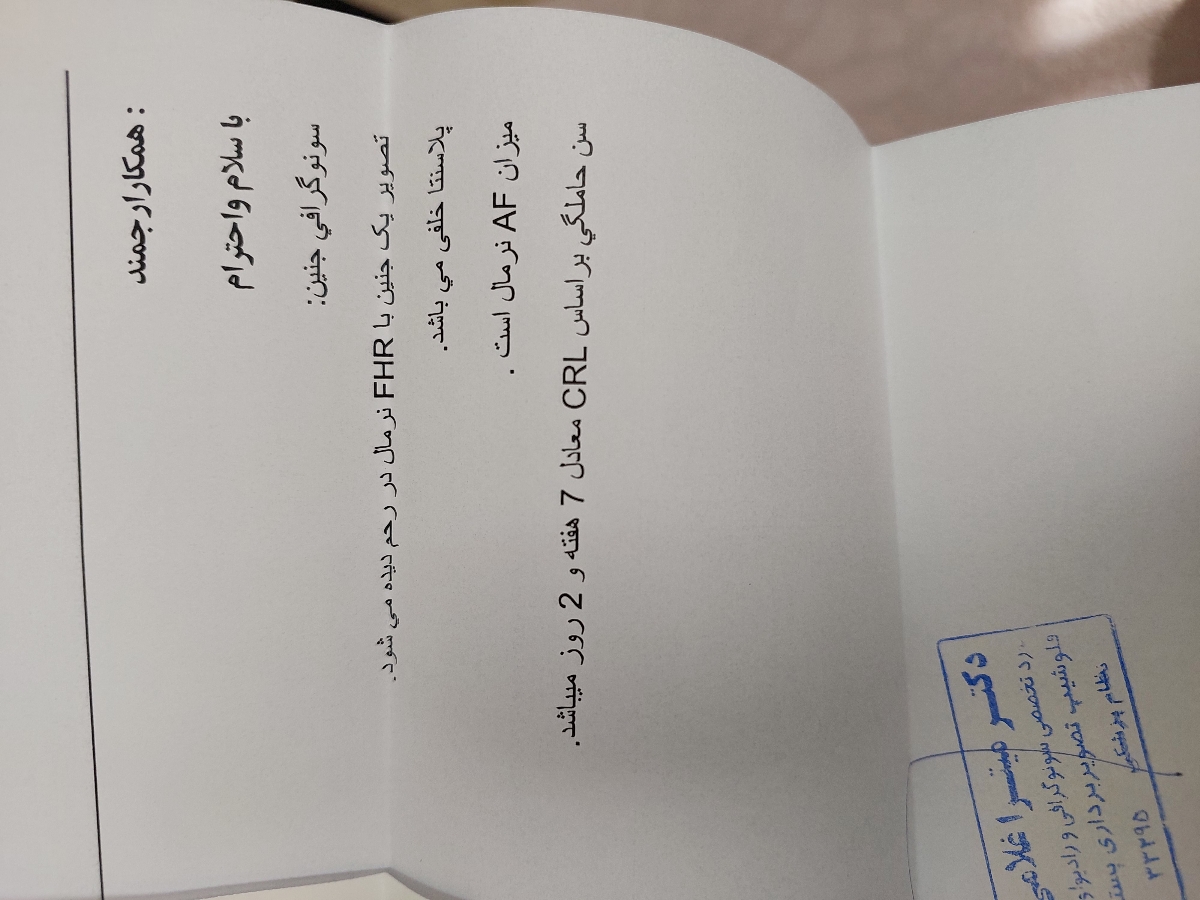 همکار ارجمند :
با سلام و احترام
سونوگرافي جنين:
تصویر یک جنین با FHR نرمال در رحم دیده می شود.
پلاسنتا خلفی می باشد.
میزان AF نرمال است .
سن حاملگي براساس CRL معادل 7 هفته و 2 روز میباشد.
دکتر میترا غلامی
تخصصی سونوگرافی و رادیولوژی
فلوشیپ تصویربرداری
نظام پزشکی